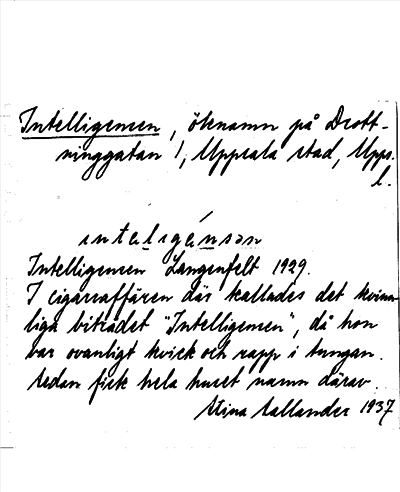 Intelligensen, öknamn på Drott-
ninggatan 1, Uppsala stad, Upps.
l.
intäligánsän
Intelligensen Langenfelt 1929.
I cigarraffären där kallades det kvinn-
liga biträdet "Intelligensen", då hon
var ovanligt kvick och rapp i tungan.
Sedan fick hela huset namn därav.
Stina Sallander 1937